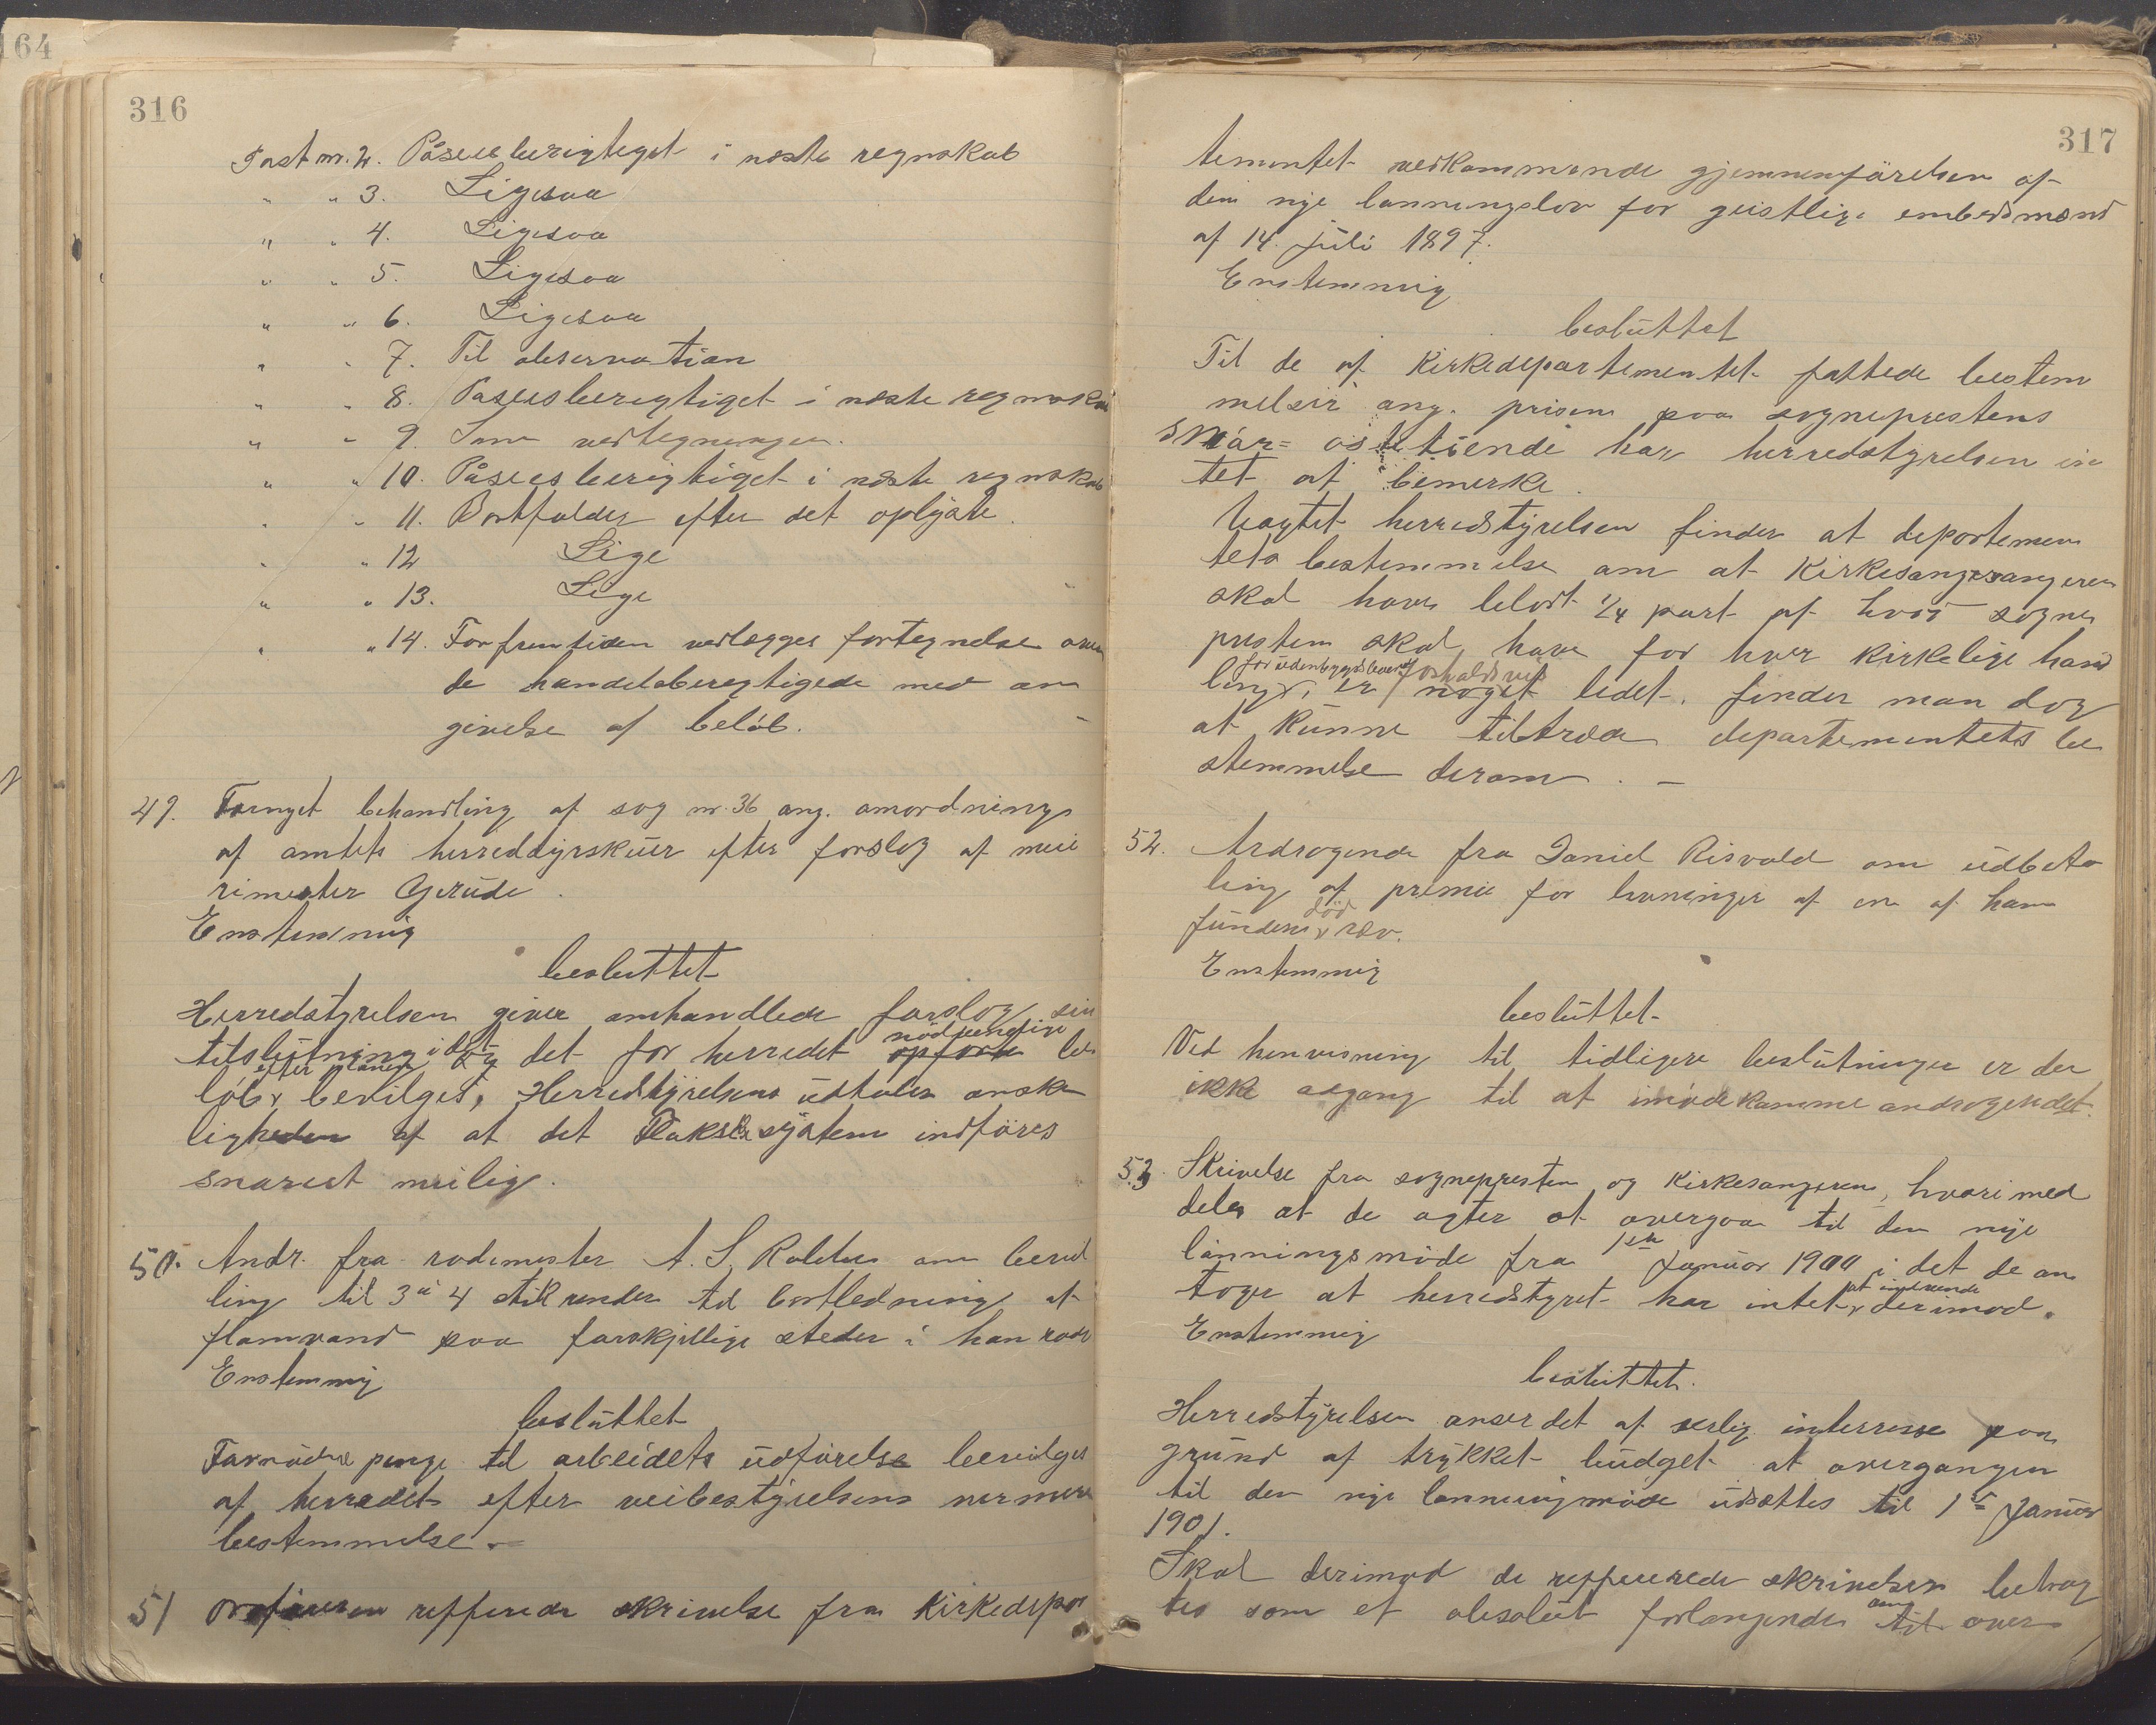 64
316
Post nr. 2. Påsees berigtiget i næste regnskab
" " 3. Ligesaa
" " 4. Ligesaa
" " 5. Ligesaa
" " 6. Ligesaa
" " 7. Til observation
" " 8. Pasees berigtiget i næste regnskab
" " 9. Som vedtegningen.
" " 10. Påsees berigtiget i næste regnskab
" " 11. Bortfalder efter det oplyste.
" " 12 Lige
" " 13. Lige
" " 14. For fremtiden vedlægges fortegnelse over
de handelsberegtigede med an
givelse af beløb.
49. Fornyet behandling af sag nr. 36 ang. anordning
af amtets herreddyrskuer efter forslag af meie
rimester Gerude.
Enstemmig
besluttet
Herredstyrelsen giver omhandlede forslag sin
tilslutning idet det for herredet nödvendige be
löb efter planen bevilges, Herredstyrelsens udtaler ønske
ligheden af at det system indføres
snarest mulig.
50. Andr. fra rodemester A. S. om bevil
ling til 3 à 4 stikrender til bortledning af
flomvand paa forskjellige steder i han rode
Enstemmig
besluttet
Fornødne penge til arbeidets udførelse bevilges
af herredet efter veibestyrelsens nermere
bestemmelse.
51 Ordføreren refferede skrivelse fra Kirkedepar
317
tementet vedkommende gjennemførelsen af
den nye lønningslov for geistlige embedsmænd
af 14. juli 1897.
Enstemmig
besluttet
Til de af Kirkedepartementet fattede bestem
melser ang. prisen paa sogneprestens
smør= ostetiende har herredstyrelsen in
tet at bemerke.
Uagtet herredstyrelsen finder at departemen
tets bestemmelse om at Kirkesangeren
skal have belost 1/4 part af hvad sogne
presten skal have for hver kirkelige hand
ling for udenbygds boende, er forholdsvis noget ledet, finder man dog
at kunne tiltræde departementets be
stemmelse derom. —
52. Andragende fra Daniel Risvold om udbeta
ling af premie for levninger af en af ham
funden død ræv.
Enstemmig
besluttet
Ved henvisning til tidligere beslutninger er der
ikke adgang til at imødekomme andragendet.
53. Skrivelse fra sognepresten og Kirkesangeren, hvori med
deles at de agter at overgaa til den nye
lønningsmåde fra 1ste Januar 1900 i det de an
toger at herredstyret har intet at indvende derimod.
Enstemmig
besluttet.
Herredstyrelsen anser det af serlig interresse paa
grund af trykket budget at overgangen
til den nye lønningmåde udsættes til 1ste Januar
1901.
Skal derimod de reffererede skrivelser betrag
tes som et absolut forlangende om at over